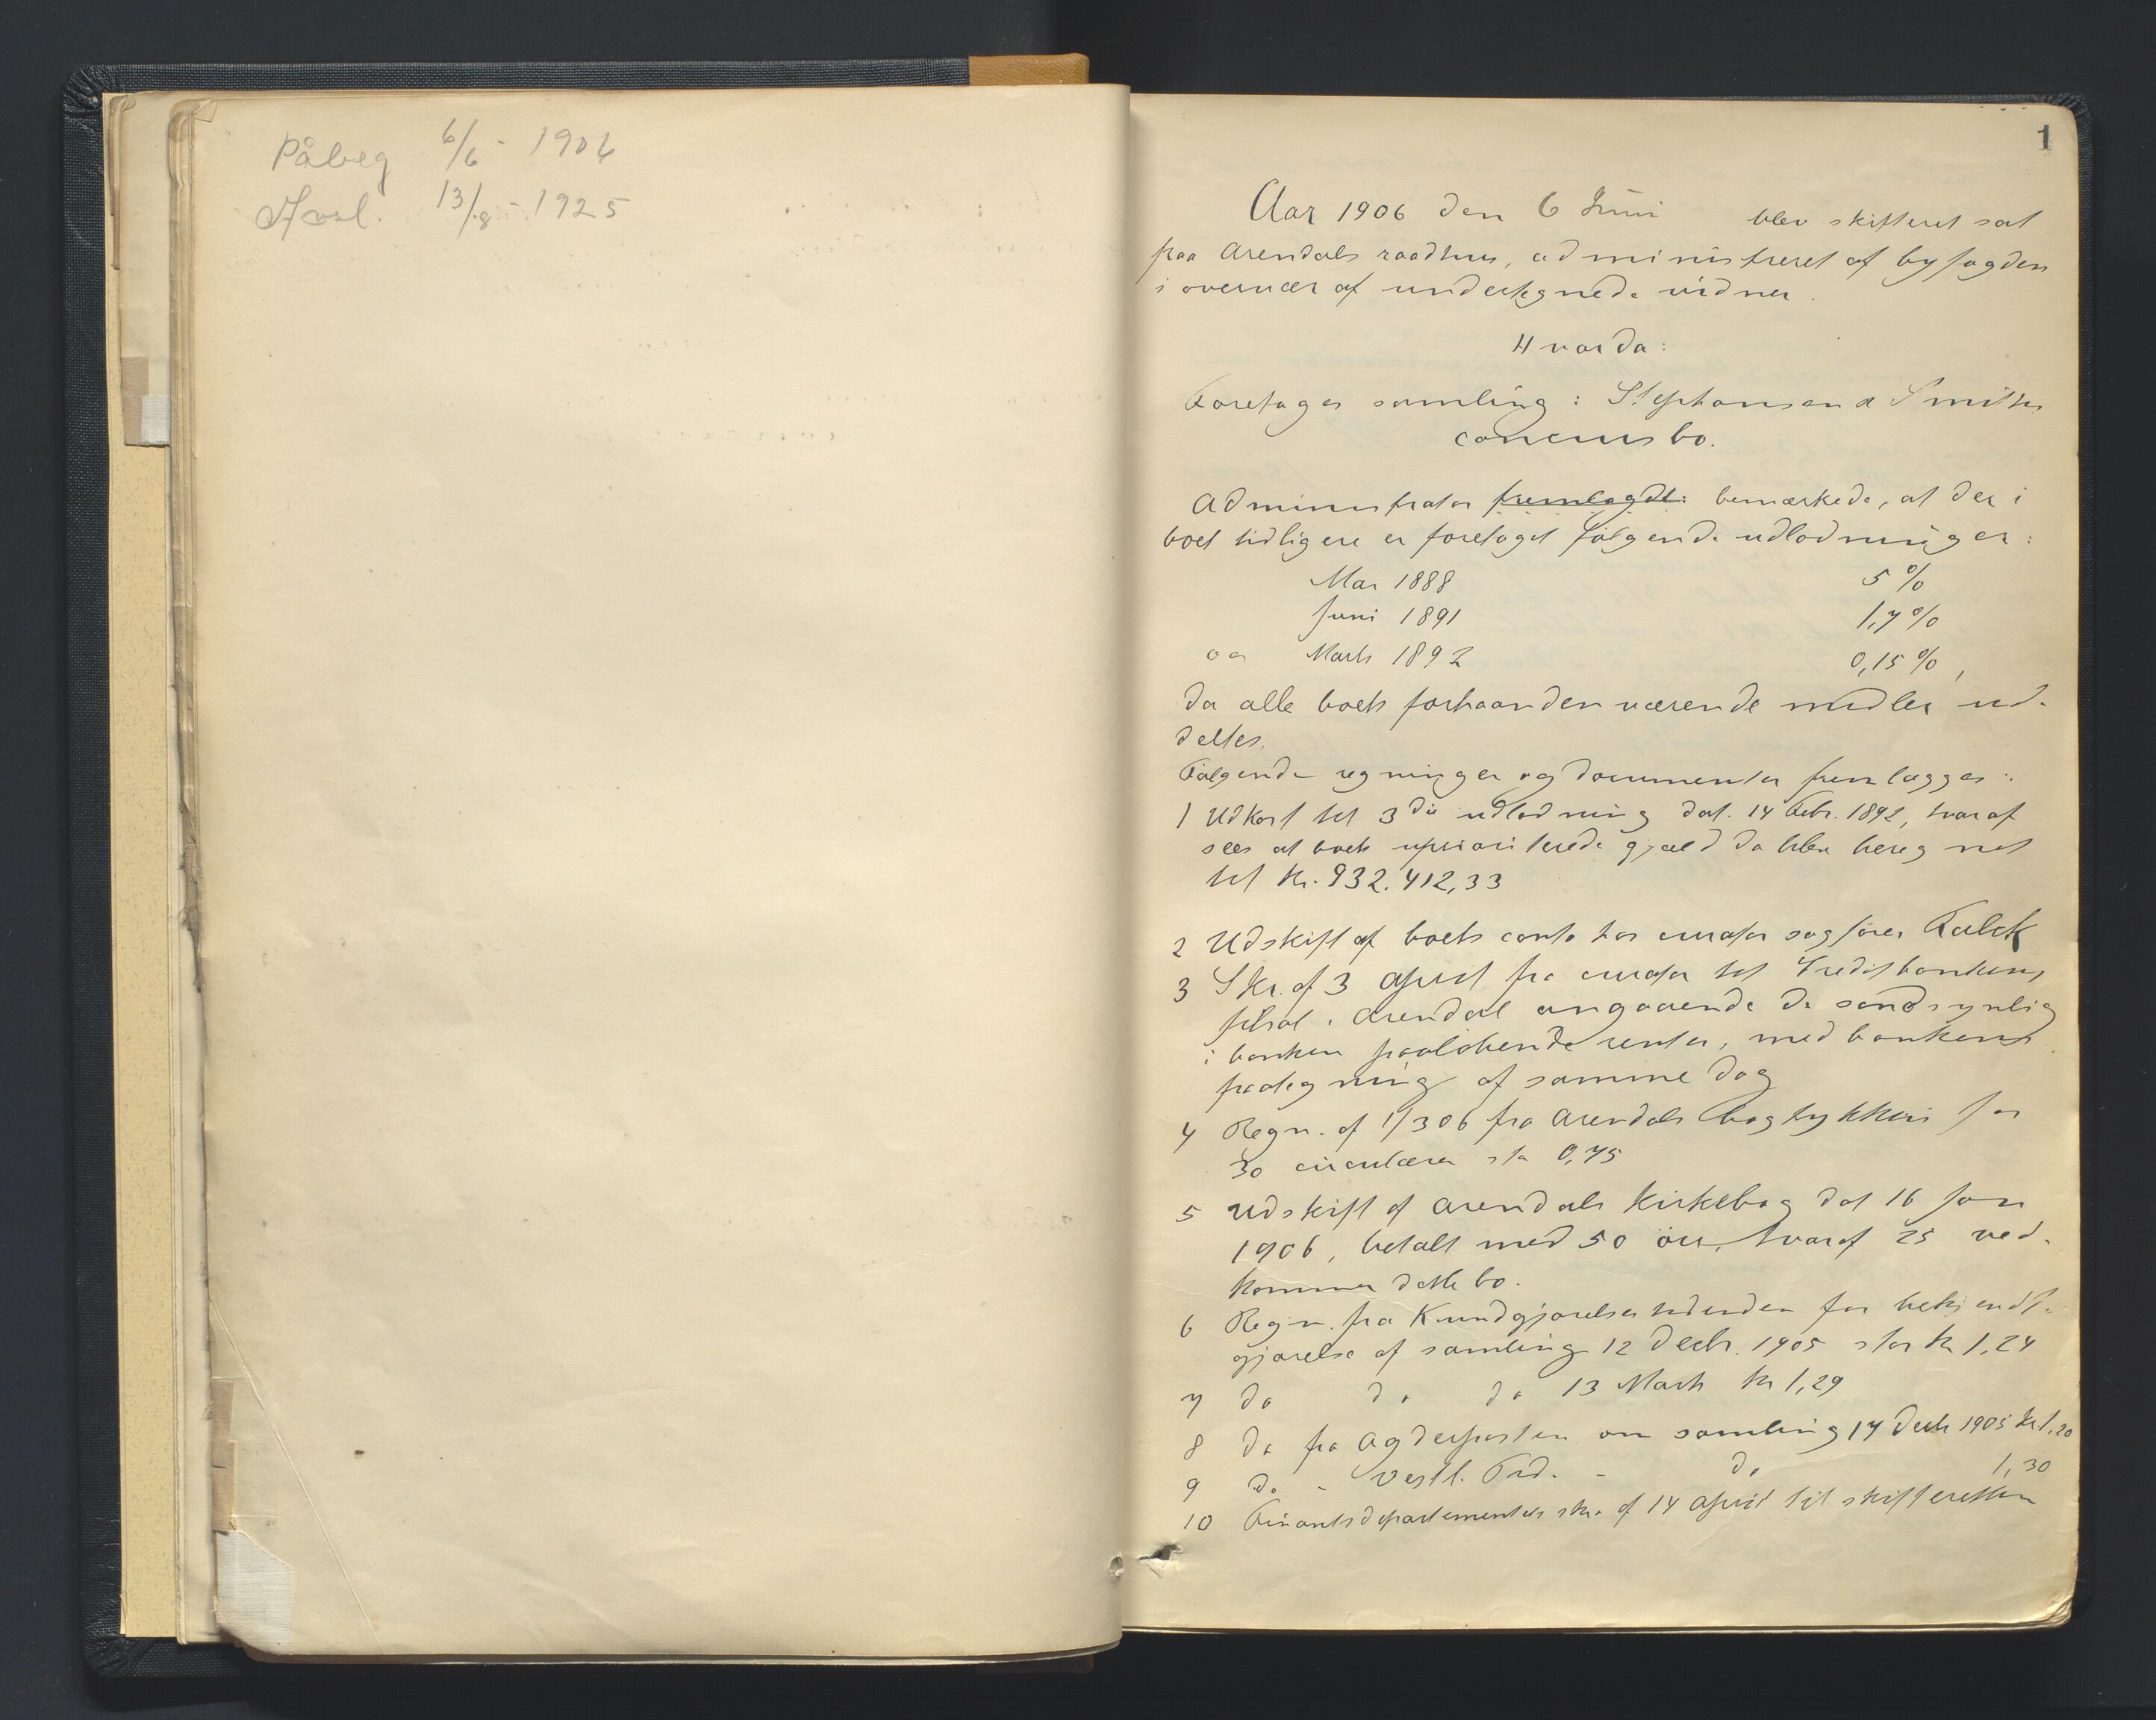 Påbeg 6/6 - 1906
Avsl. 13/8 - 1925
1
Aar 1906 den 6 Juni blev skifteret sat
paa Arendals raadhus, administreret af byfogden
i overvær af undertegnede vidner.
Hvorda:
Foretoges samling: Stephansen & Smiths
concursbo.
Administrator fremlagde: bemærkede, at der i
boet tidligere er foretaget følgende udlodninger:
Mai 1888 5 %
Juni 1891 1,7 %
og Marts 1892 0,15 %,
da alle boets forhaandenværende midler ud-
deltes.
Følgende regninger og documenter fremlægges:
1 Udkast til 3die udlodning dat. 14 Febr. 1892, hvoraf
sees at boets uprioriterede gjæld da blev beregnet
til kr. 932.412,33
2 Udskrift af boets conto hos curator sagfører Falck
3 Skr. af 3 April fra curator til Kreditbankens
filial i Arendal angaaende de sandsynlig
i banken paaløbende renter, med bankens
paategning af samme dag
4 Regn. af 1/3 06 fra Arendals bogtrykkeri for
30 circulærer stor 0,75
5 Udskrift af Arendals Kirkebog dat 16 Jan
1906, betalt med 50 öre, hvoraf 25 ved-
kommer dette bo.
6 Regn. fra Kundgjørelsestidenden for bekjendt-
gjørelse af samling 12 Decbr. 1905 stor kr 1,24
7 do do do 13 Marts kr 1,29
8 do fra Agderposten om samling 14 Decbr 1905 kr 1,20
9 do - Vestl. Tid. - do 1,30
10 Finantsdepartementets skr. af 14 April til skifteretten